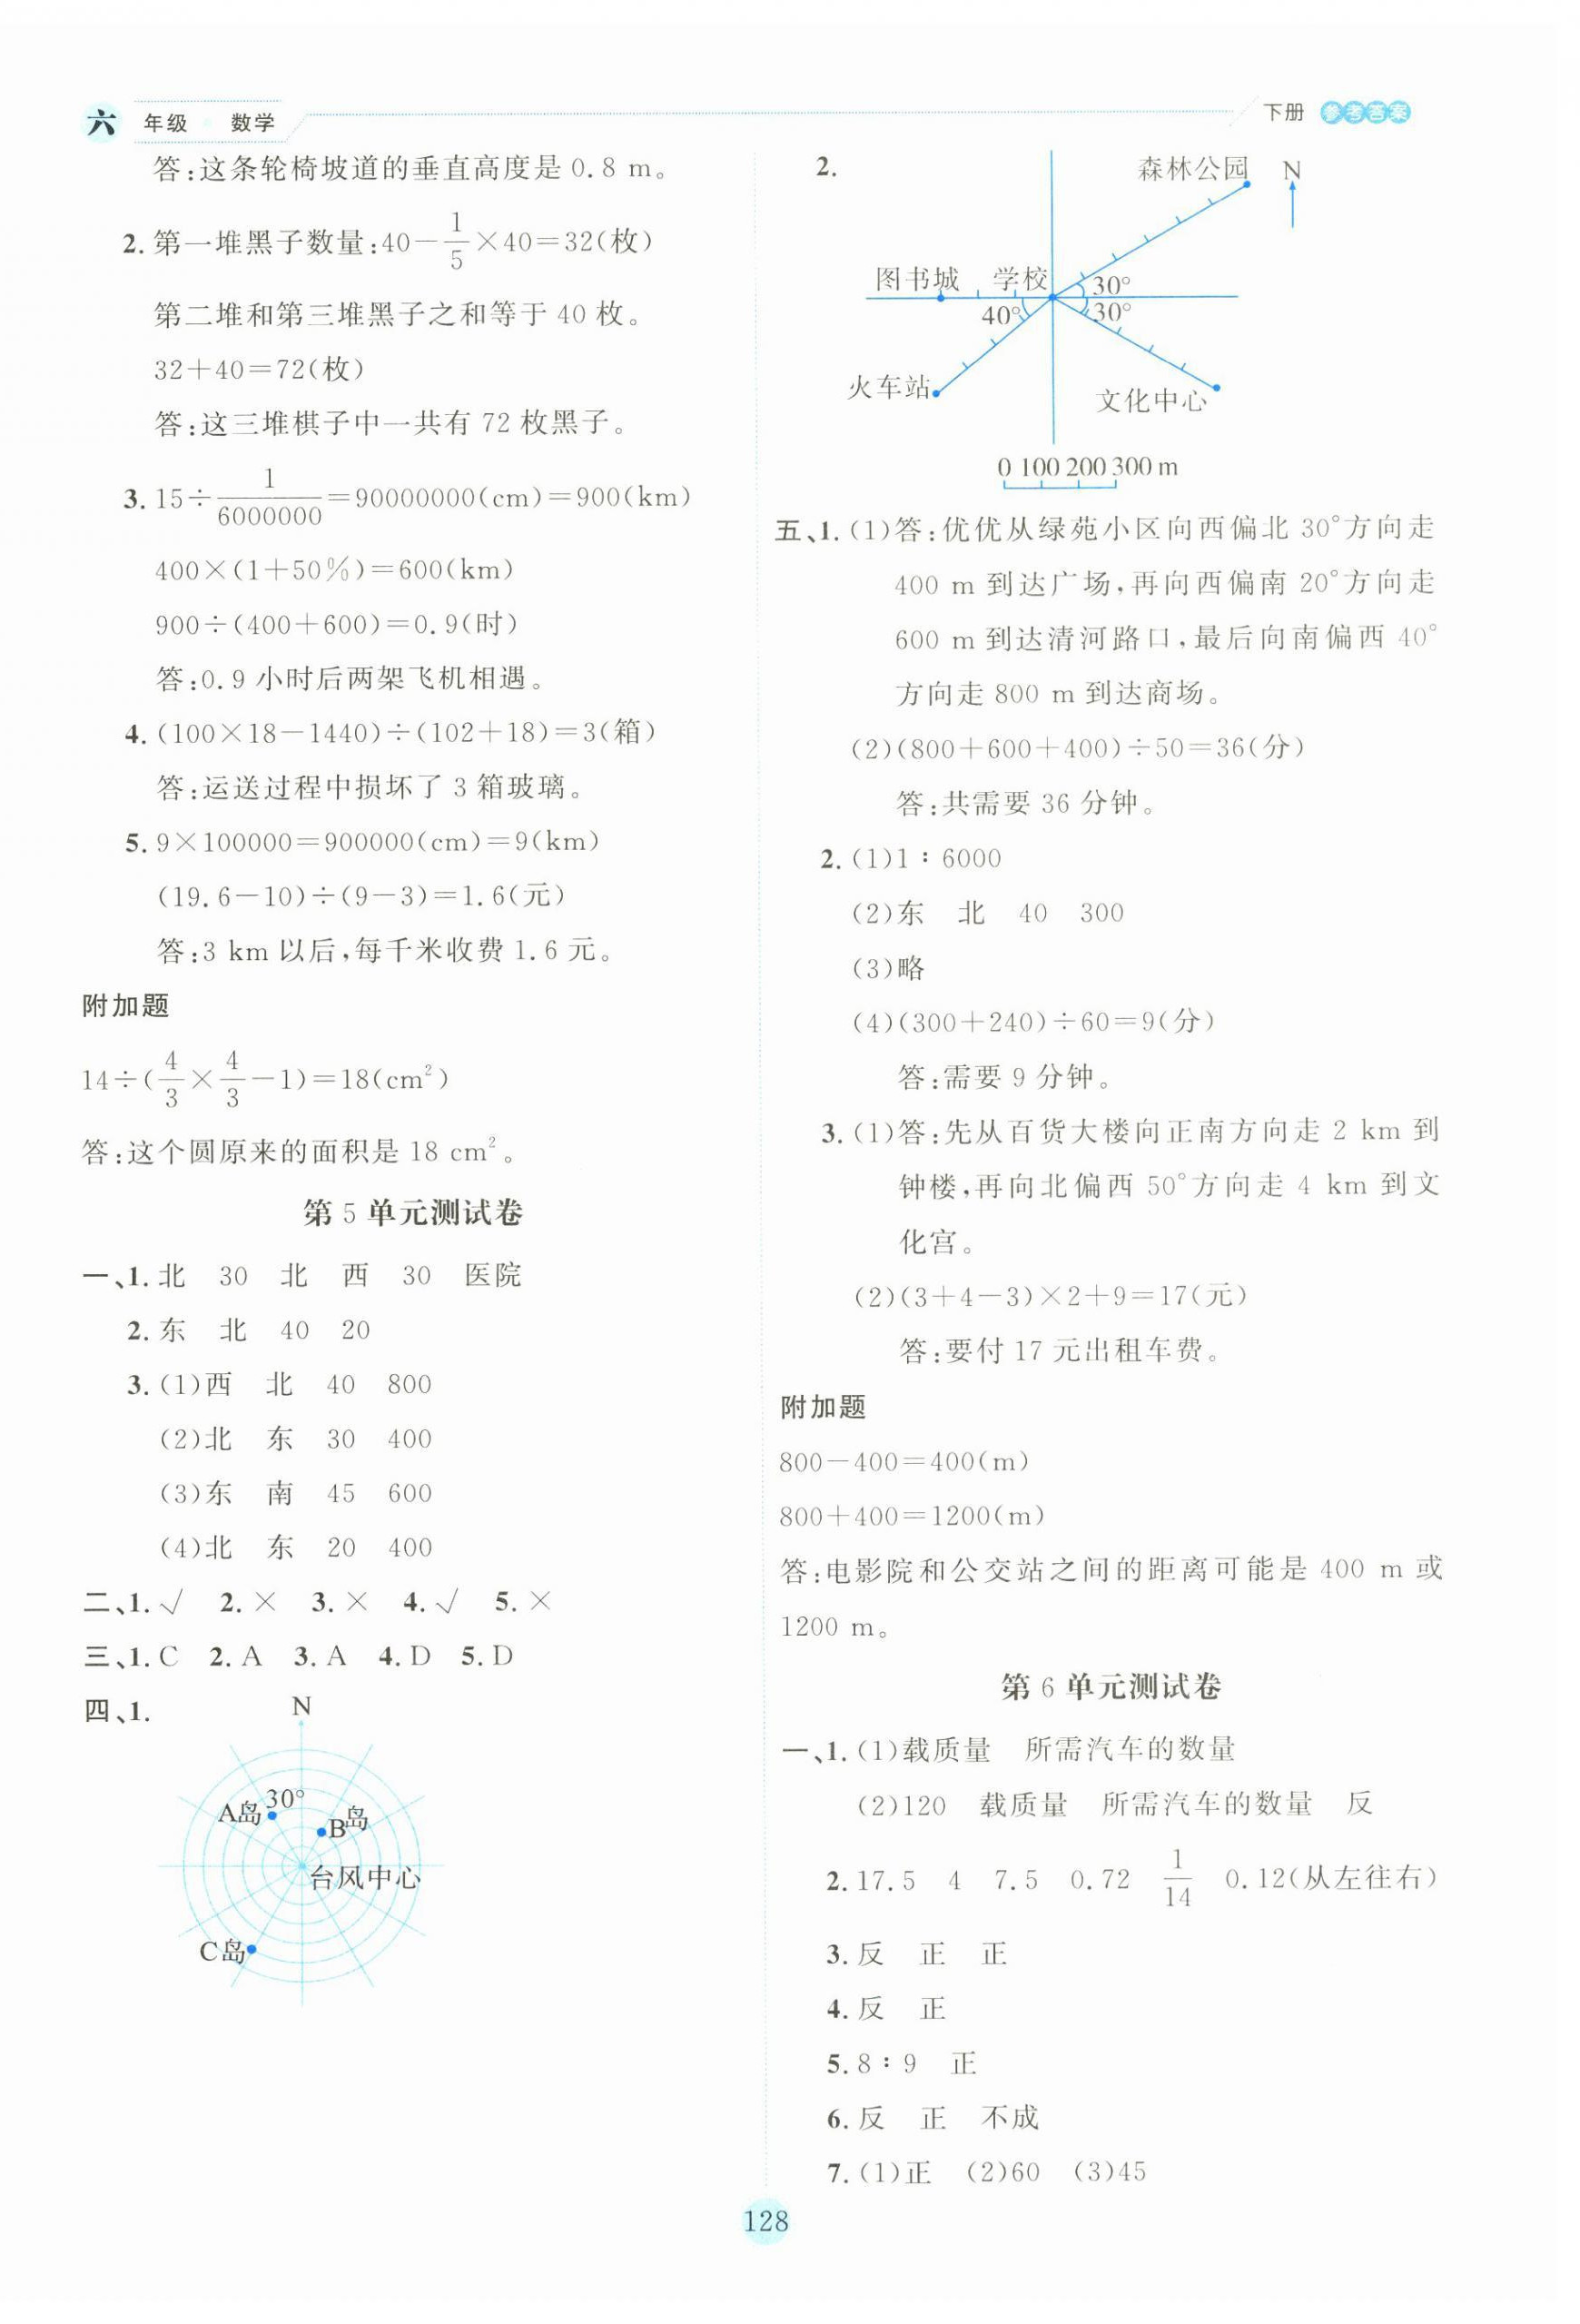 六 年级 数学
下册 参考答案
答:这条轮椅坡道的垂直高度是 0.8 m。
2. 第一堆黑子数量:40－1/5×40＝32(枚)
第二堆和第三堆黑子之和等于 40 枚。
32＋40＝72(枚)
答:这三堆棋子中一共有 72 枚黑子。
3. 15÷1/6000000＝90000000(cm)＝900(km)
400×(1＋50%)＝600(km)
900÷(400＋600)＝0.9(时)
答:0.9 小时后两架飞机相遇。
4. (100×18－1440)÷(102＋18)＝3(箱)
答:运送过程中损坏了 3 箱玻璃。
5. 9×100000＝900000(cm)＝9(km)
(19.6－10)÷(9－3)＝1.6(元)
答:3 km 以后,每千米收费 1.6 元。
附加题
14÷(4/3×4/3－1)＝18(cm²)
答:这个圆原来的面积是 18 cm²。
第 5 单元测试卷
一、1. 北 30 北 西 30 医院
2. 东 北 40 20
3. (1)西 北 40 800
(2)北 东 30 400
(3)东 南 45 600
(4)北 东 20 400
二、1. √ 2. × 3. × 4. √ 5. ×
三、1. C 2. A 3. A 4. D 5. D
四、1.
N
30°
A岛
B岛
台风中心
C岛
2.
森林公园 N
图书城 学校 30°
40° 30°
火车站 文化中心
0 100 200 300 m
五、1. (1)答:优优从绿苑小区向西偏北 30°方向走
400 m 到达广场,再向西偏南 20°方向走
600 m 到达清河路口,最后向南偏西 40°
方向走 800 m 到达商场。
(2)(800＋600＋400)÷50＝36(分)
答:共需要 36 分钟。
2. (1)1∶6000
(2)东 北 40 300
(3)略
(4)(300＋240)÷60＝9(分)
答:需要 9 分钟。
3. (1)答:先从百货大楼向正南方向走 2 km 到
钟楼,再向北偏西 50°方向走 4 km 到文
化宫。
(2)(3＋4－3)×2＋9＝17(元)
答:要付 17 元出租车费。
附加题
800－400＝400(m)
800＋400＝1200(m)
答:电影院和公交站之间的距离可能是 400 m 或
1200 m。
第 6 单元测试卷
一、1. (1)载质量 所需汽车的数量
(2)120 载质量 所需汽车的数量 反
2. 17.5 4 7.5 0.72 1/14 0.12(从左往右)
3. 反 正 正
4. 反 正
5. 8∶9 正
6. 反 正 不成
7. (1)正 (2)60 (3)45
128